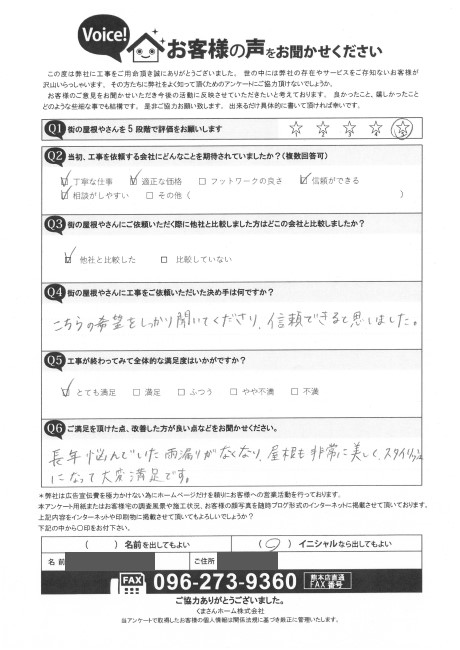 Voice!
お客様の声をお聞かせください
この度は弊社に工事をご用命頂き誠にありがとうございました。世の中には弊社の存在やサービスをご存知ないお客様が
沢山いらっしゃいます、その方たちに弊社をよく知って頂くためのアンケートにご協力頂けないでしょうか。
お客様のご意見をお聞かせいただき今後の活動に反映させていただきたいと考えております。良かったこと、嬉しかったこと
どのような些細な事でも結構です。是非ご協力お願い致します。出来るだけ具体的に書いて頂ければ幸いです。
Q1 街の屋根やさんを5段階で評価をお願いします
1 2 3 4 5
Q2 当初、工事を依頼する会社にどんなことを期待されていましたか?(複数回答可)
☑ 丁寧な仕事 ☑ 適正な価格 □ フットワークの良さ ☑ 信頼ができる
☑ 相談がしやすい □ その他( )
Q3 街の屋根やさんにご依頼いただく際に他社と比較しました方はどこの会社と比較しましたか?
☑ 他社と比較した □ 比較していない
Q4 街の屋根やさんに工事をご依頼いただいた決め手は何ですか?
こちらの希望をしっかり聞いてくださり、信頼できると思いました。
Q5 工事が終わってみて全体的な満足度はいかがですか?
☑ とても満足 □ 満足 □ ふつう □ やや不満 □ 不満
Q6 ご満足を頂けた点、改善した方が良い点などをお聞かせください。
長年悩んでいた雨漏りがなくなり、屋根も非常に美しく、スタイリッシュ
になって大変満足です。
*弊社は広告宣伝費を極力かけない為にホームページだけを頼りにお客様への営業活動を行っております。
*本アンケート用紙またはお客様宅の調査風景や施工状況、お客様の顔写真を随時ブログ形式のインターネットに掲載させて頂いております。
上記内容をインターネットや印刷物に掲載させて頂いてもよろしいでしょうか?
下記の中から○印をお付下さい。
( ) 名前を出してもよい (○) イニシャルなら出してもよい
名前 ご住所
FAX 096-273-9360 熊本店直通 FAX番号
ご協力ありがとうございました。
くまさんホーム株式会社
当アンケートで取得したお客様の個人情報は関係法規に基づき厳正に管理いたします。